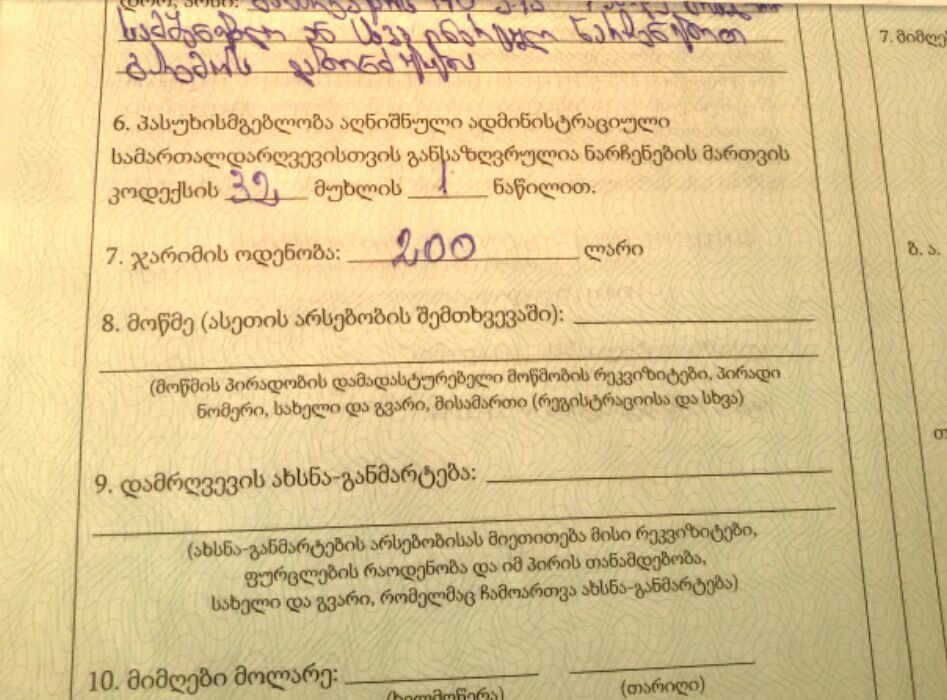 სამშენებლო ან სხვა ინერტული ნარჩენებით
გარემოს დაბინძურება
6. პასუხისმგებლობა აღნიშნული ადმინისტრაციული
სამართალდარღვევისთვის განსაზღვრულია ნარჩენების მართვის
კოდექსის 32 მუხლის 1 ნაწილით.
7. ჯარიმის ოდენობა: 200 ლარი
8. მოწმე (ასეთის არსებობის შემთხვევაში):
(მოწმის პირადობის დამადასტურებელი მოწმობის რეკვიზიტები, პირადი
ნომერი, სახელი და გვარი, მისამართი (რეგისტრაციისა და სხვა)
9. დამრღვევის ახსნა-განმარტება:
(ახსნა-განმარტების არსებობისას მიეთითება მისი რეკვიზიტები,
ფურცლების რაოდენობა და იმ პირის თანამდებობა,
სახელი და გვარი, რომელმაც ჩამოართვა ახსნა-განმარტება)
10. მიმღები მოლარე:
(ხელმოწერა) (თარიღი)
7. მიმღე
ბ. ა.